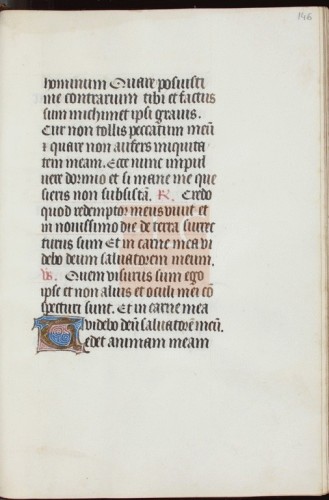 146
hominum Quare posuisti
me contrarium tibi et factus
sum michimet ipsi grauis.
Cur non tollis peccatum meū
⁊ quare non aufers iniquita
tem meam. Ecce nunc in pul
uere dormio et si mane me que
sieris non subsistā. R. Credo
quod redemptor meus viuit et
in nouissimo die de terra surre
cturus sum Et in carne mea vi
debo deum saluatorem meum.
Vs. Quem visurus sum ego
ipse et non alius et oculi mei cō
specturi sunt. Et in carne mea
videbo deū saluatorē meū.
Tedet animam meam